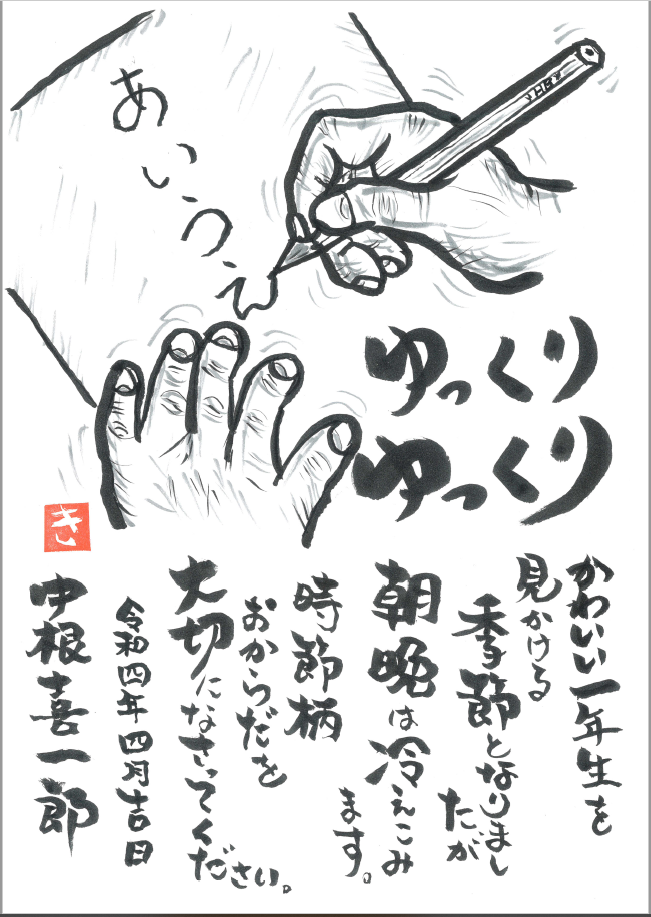 あいうえ
HB
ゆっくり
ゆっくり
かわいい一年生を
見かける
季節となりまし
たが
朝晩は冷えこみ
ます。
時節柄
おからだを
大切になさってください。
令和四年四月吉日
中根喜一郎
き